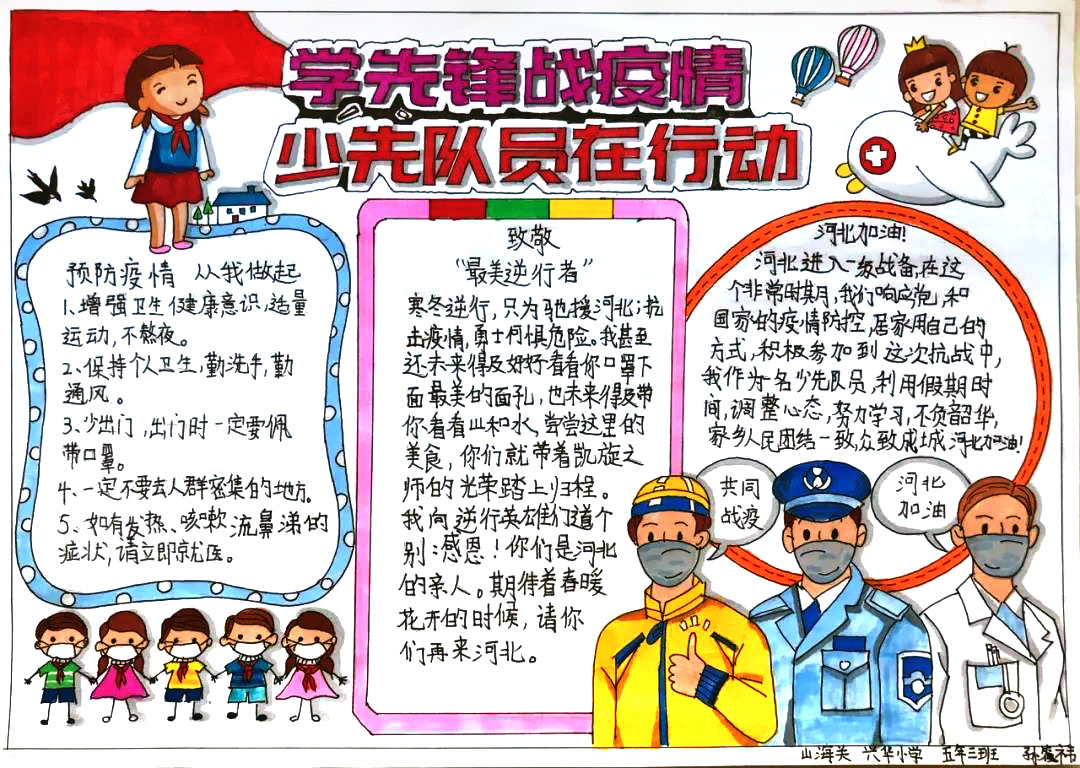 学先锋战疫情
少先队员在行动
预防疫情 从我做起
1、增强卫生健康意识,适量
运动,不熬夜。
2、保持个人卫生,勤洗手,勤
通风。
3、少出门,出门时一定要佩
带口罩。
4、一定不要去人群密集的地方。
5、如有发热、咳嗽、流鼻涕的
症状,请立即就医。
致敬
“最美逆行者”
寒冬逆行,只为驰援河北;抗
击疫情,勇士何惧危险。我甚至
还未来得及好好看看你口罩下
面最美的面孔,也未来得及带
你看看山和水,尝尝这里的
美食,你们就带着凯旋之
师的光荣踏上归程。
我向逆行英雄们道个
别:感恩!你们是河北
的亲人。期待着春暖
花开的时候,请你
们再来河北。
河北加油!
河北进入一级战备,在这
个非常时期月,我们响应党和
国家的疫情防控,居家用自己的
方式,积极参加到这次抗战中,
我作为一名少先队员,利用假期时
间,调整心态,努力学习,不负韶华,
家乡人民团结一致众致成城河北加油!
共同
战疫
河北
加油
山海关 兴华小学 五年三班 孙